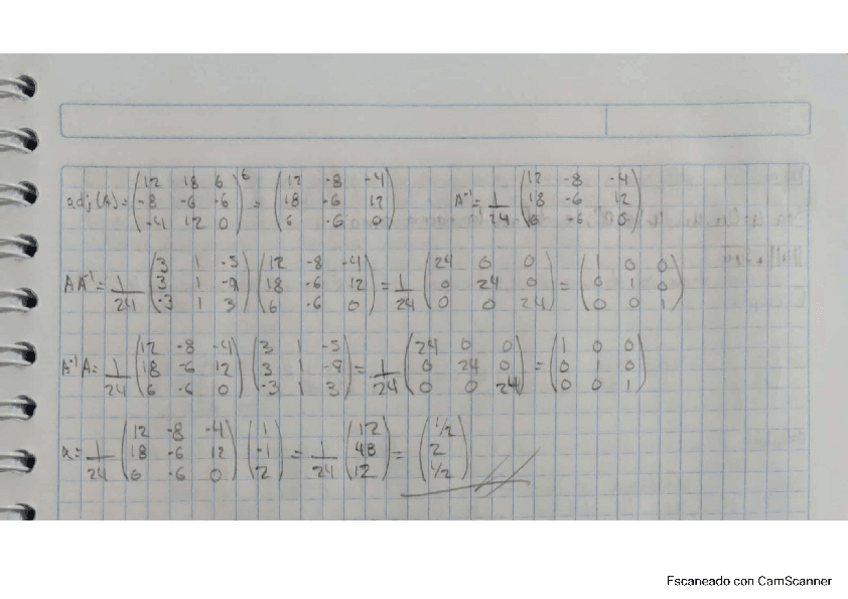 adj(A) = (12 18 6; -8 -6 -6; -4 12 0)^t = (12 -8 -4; 18 -6 12; 6 -6 0)   A⁻¹ = 1/24 (12 -8 -4; 18 -6 12; 6 -6 0)
AA⁻¹ = 1/24 (3 1 -5; 3 1 -9; -3 1 3) (12 -8 -4; 18 -6 12; 6 -6 0) = 1/24 (24 0 0; 0 24 0; 0 0 24) = (1 0 0; 0 1 0; 0 0 1)
A⁻¹A = 1/24 (12 -8 -4; 18 -6 12; 6 -6 0) (3 1 -5; 3 1 -9; -3 1 3) = 1/24 (24 0 0; 0 24 0; 0 0 24) = (1 0 0; 0 1 0; 0 0 1)
= 1/24 (12 -8 -4; 18 -6 12; 6 -6 0) (1; -1; 2) = 1/24 (12; 48; 12) = (1/2; 2; 1/2)
Escaneado con CamScanner